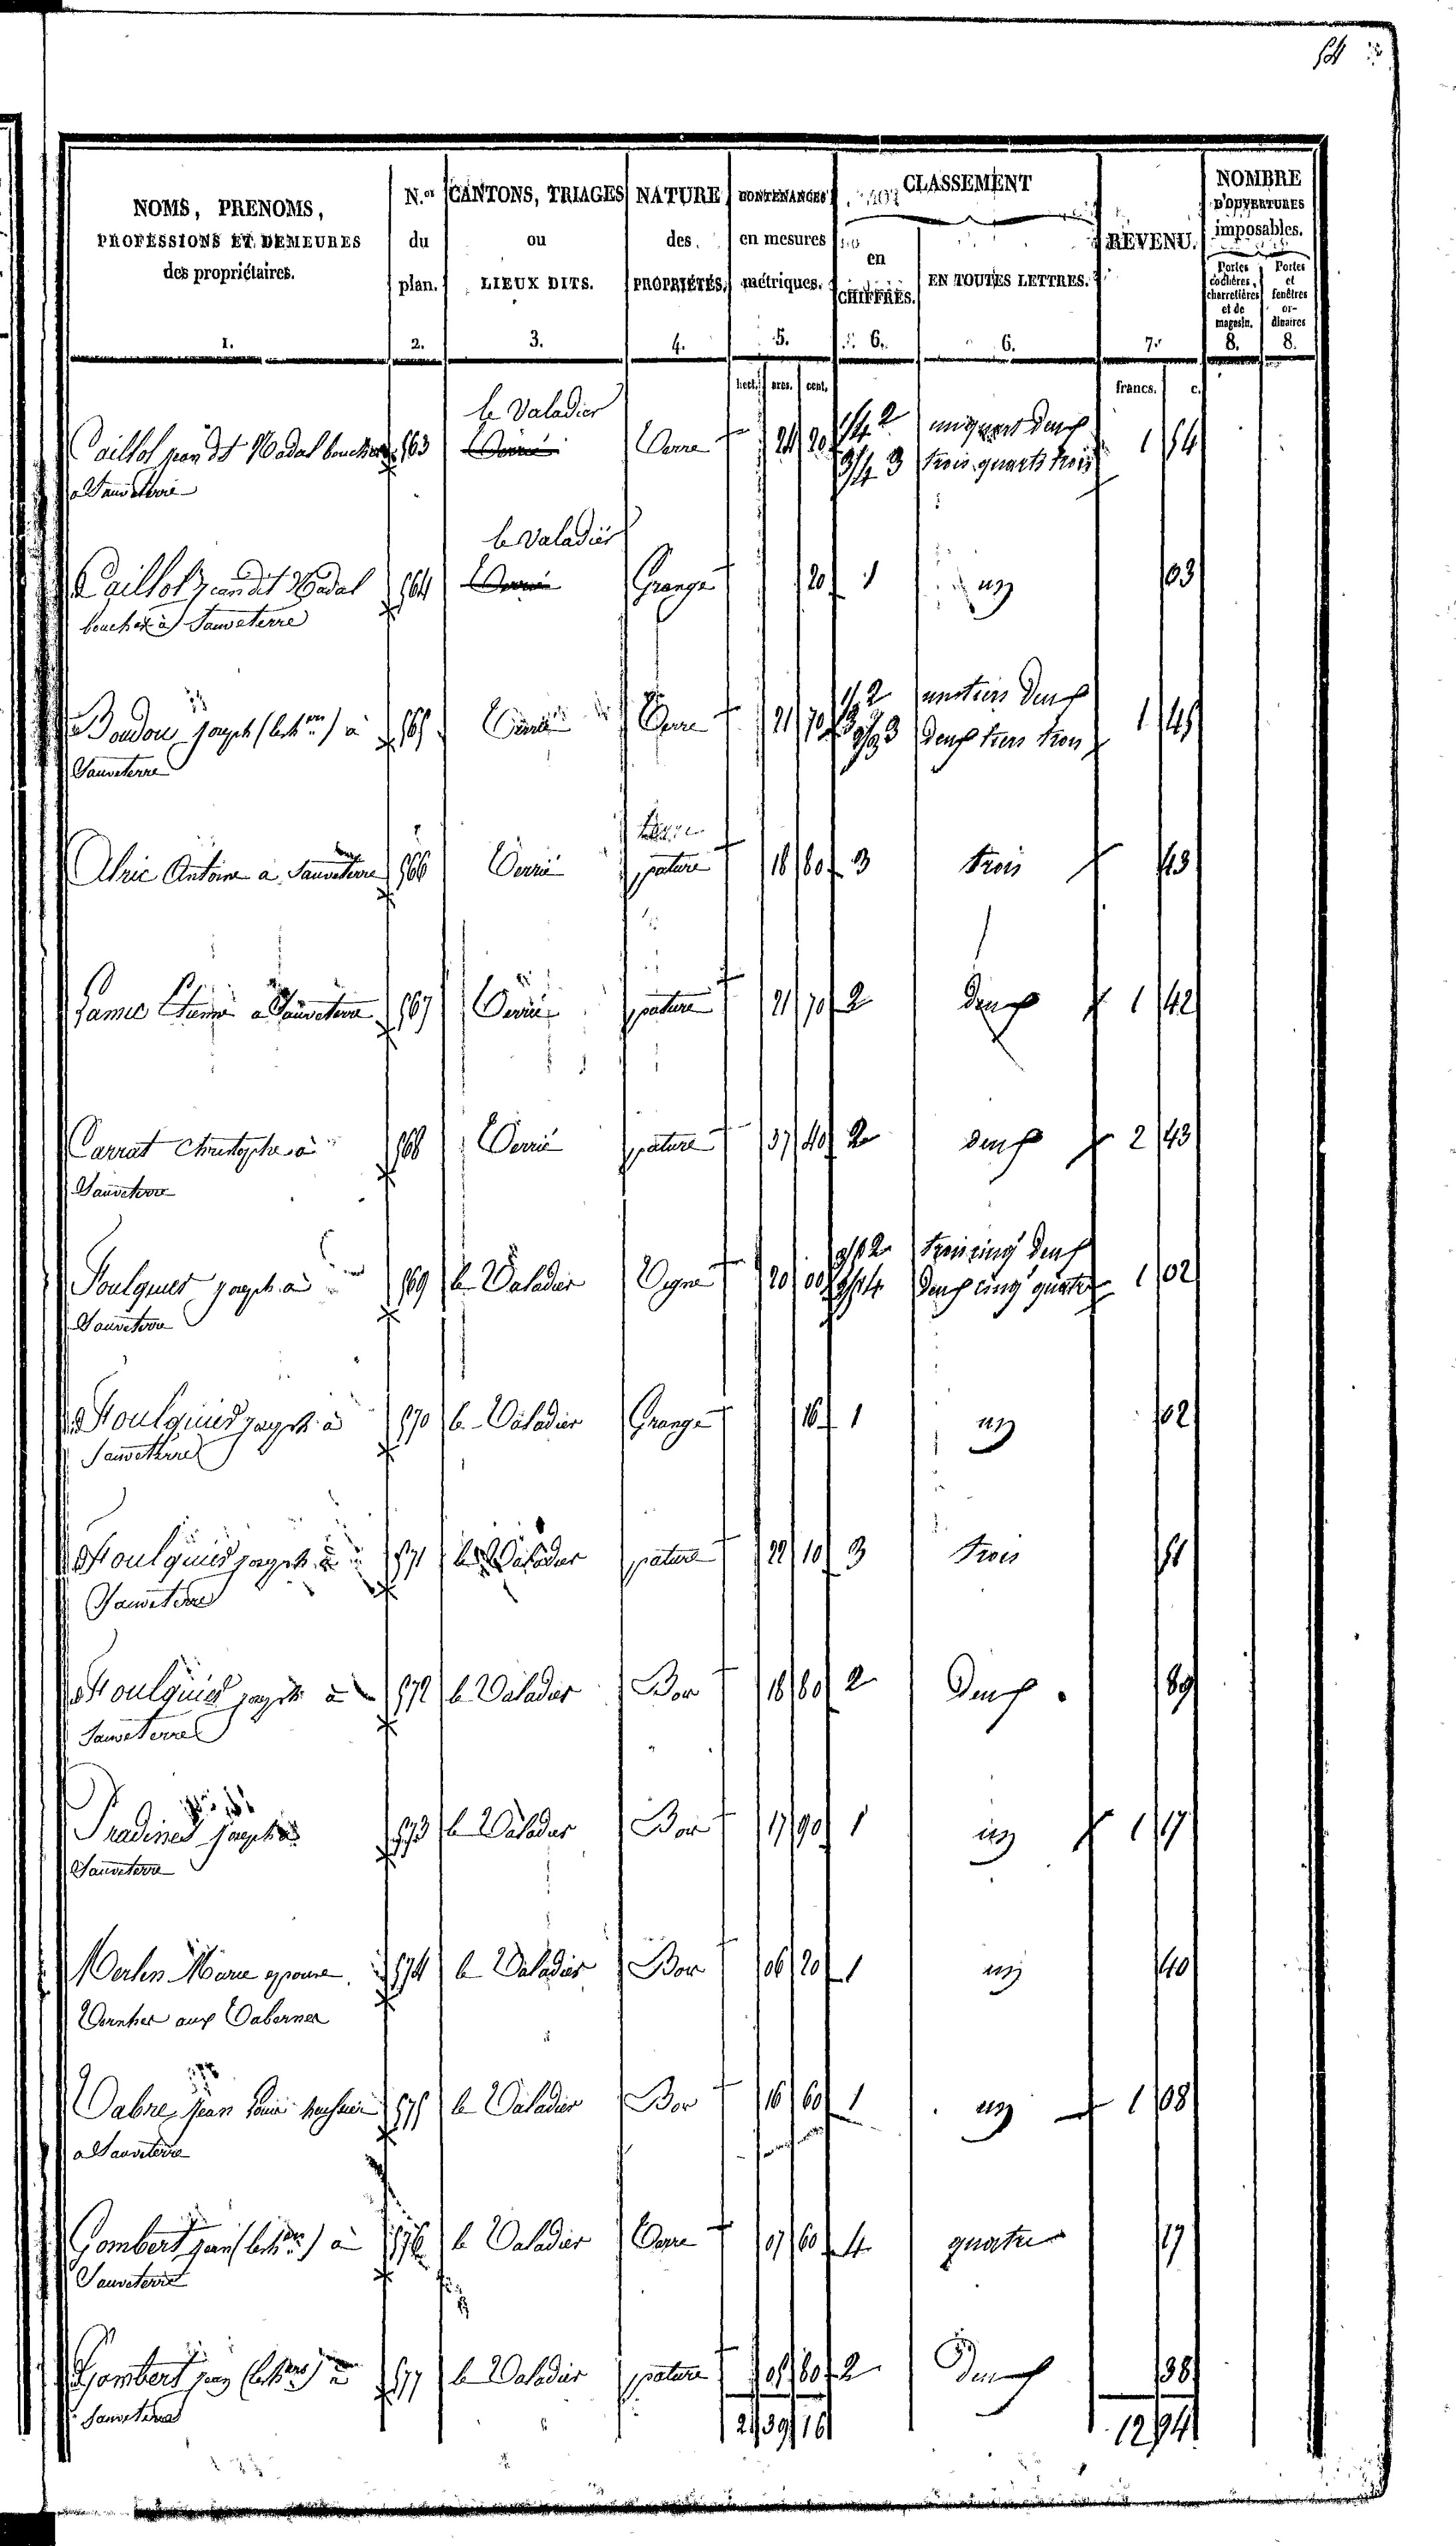 54
NOMS, PRENOMS, PROFESSIONS ET DEMEURES des propriétaires. 1.
N.os du plan. 2.
CANTONS, TRIAGES ou LIEUX DITS. 3.
NATURE des PROPRIÉTÉS. 4.
CONTENANCES en mesures métriques. 5.
CLASSEMENT
en CHIFFRES. 6.
EN TOUTES LETTRES. 6.
REVENU. 7.
NOMBRE D'OUVERTURES imposables.
Portes cochères, charretières et de magasin. 8.
Portes et fenêtres ordinaires 8.
hect. ares. cent. francs. c.
le Valadier
Caillol jean dit Nadal boucher 563 Terre 24 20 1/4 2 un quart deux 1 54
a Sauveterre 3/4 3 trois quarts trois
le Valadier
Caillol jean dit Nadal 564 Grange 20 1 un 03
boucher à Sauveterre
Boudou joseph (les hers) à 565 Terre 21 70 1/3 2 un tiers deux 1 45
Sauveterre 2/3 3 deux tiers trois
Alric Antoine a Sauveterre 566 pature 18 80 3 trois 43
a Sauveterre 567 pature 21 70 2 deux 1 42
Carrat Christophe à 568 pature 37 40 2 deux 2 43
Sauveterre
Foulquier joseph à 569 le Valadier Vigne 20 00 3/5 2 trois cinq deux 1 02
Sauveterre 2/5 4 deux cinq quatre
Foulquier joseph à 570 le Valadier Grange 16 1 un 02
Sauveterre
Foulquier joseph à 571 le Valadier pature 22 10 3 trois 51
Sauveterre
Foulquier joseph à 572 le Valadier Bois 18 80 2 Deux 89
Sauveterre
Pradines joseph à 573 le Valadier Bois 17 90 1 un 1 17
Sauveterre
Merlin Marie epouse 574 le Valadier Bois 06 20 1 un 40
Vernhes aux
Vabre jean 575 le Valadier Bois 16 60 1 un 1 08
a Sauveterre
Gombert jean (les hers) à 576 le Valadier Terre 07 60 4 quatre 17
Sauveterre
Gombert jean (les hers) à 577 le Valadier pature 05 80 2 Deux 38
Sauveterre
2 39 16 12 94